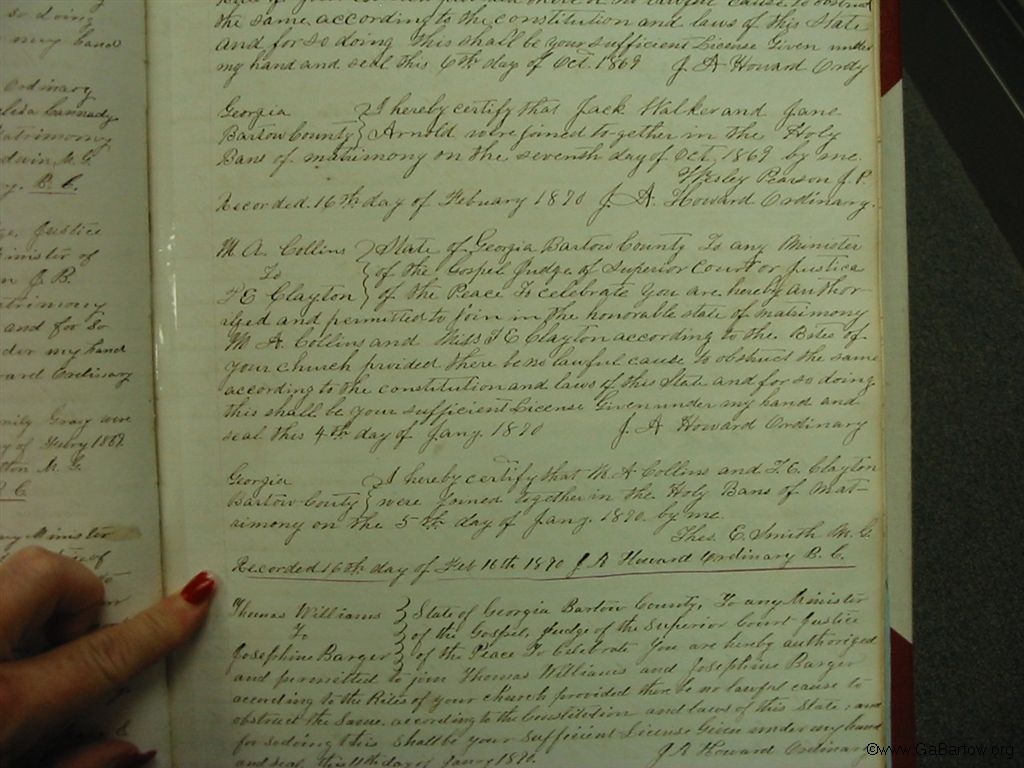 so doing
my hand
Ordinary
Cannady
atrimony
dwin, M. G.
B. C.
Justice
inister of
J. B.
atrimony
and for so
der my hand
Ordinary
mily Gray were
y of Feby 1869
ton M. G.
B C
Minister
of
the same, according to the constitution and laws of this State
and for so doing this shall be your sufficient License Given under
my hand and seal this 6th day of Oct. 1869 J. A Howard Ordy
Georgia } I hereby certify that Jack Walker and Jane
Bartow County } Arnold were joined together in the Holy
Bans of matrimony on the seventh day of Oct, 1869 by me.
Wesley Pearson J. P.
Recorded 16th day of Febuary 1870 J. A. Howard Ordinary.
M A. Collins } State of Georgia Bartow County To any Minister
To } of the Gospel, Judge of Superior Court or Justice
F E Clayton } of the Peace To celebrate You are hereby author-
ised and permitted to join in the honorable state of matrimony
M A Collins and Miss F E Clayton according to the Rites of
your church provided there be no lawful cause to obstruct the same
according to the constitution and laws of this State and for so doing
this shall be your sufficient License Given under my hand and
seal this 4th day of Jany. 1870 J. A Howard Ordinary
Georgia } I hereby certify that M. A Collins and F. E. Clayton
Bartow County } were joined together in the Holy Bans of Mat-
rimony on the 5th day of Jany. 1870. by me.
Thos. E. Smith M. G.
Recorded 16th day of Feb 16th 1870 J A Howard Ordinary B. C.
Thomas Williams } State of Georgia Bartow County, To any Minister
To } of the Gospel, Judge of the Superior Court Justice
Josephine Barger } of the Peace To Celebrate You are hereby authorized
and permitted to join Thomas Williams and Josephine Barger
according to the Rites of your church provided there be no lawful cause to
obstruct the same according to the Constitution and laws of this State; and
for so doing this shall be your sufficient License Given under my hand
and seal, this 11th day of Jany 1870. J. A Howard Ordinary
©www.GaBartow.org